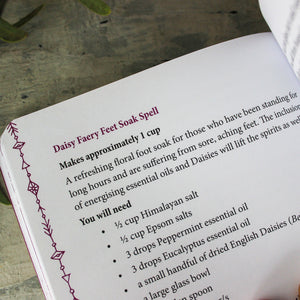 Daisy Faery Feet Soak Spell
Makes approximately 1 cup
A refreshing floral foot soak for those who have been standing for
long hours and are suffering from sore, aching feet. The inclusion
of energising essential oils and Daisies will lift the spirits as we
You will need
• ½ cup Himalayan salt
• ½ cup Epsom salts
• 3 drops Peppermint essential oil
• 3 drops Eucalyptus essential oil
• a small handful of dried English Daisies (Be
• a large glass bowl
spoon